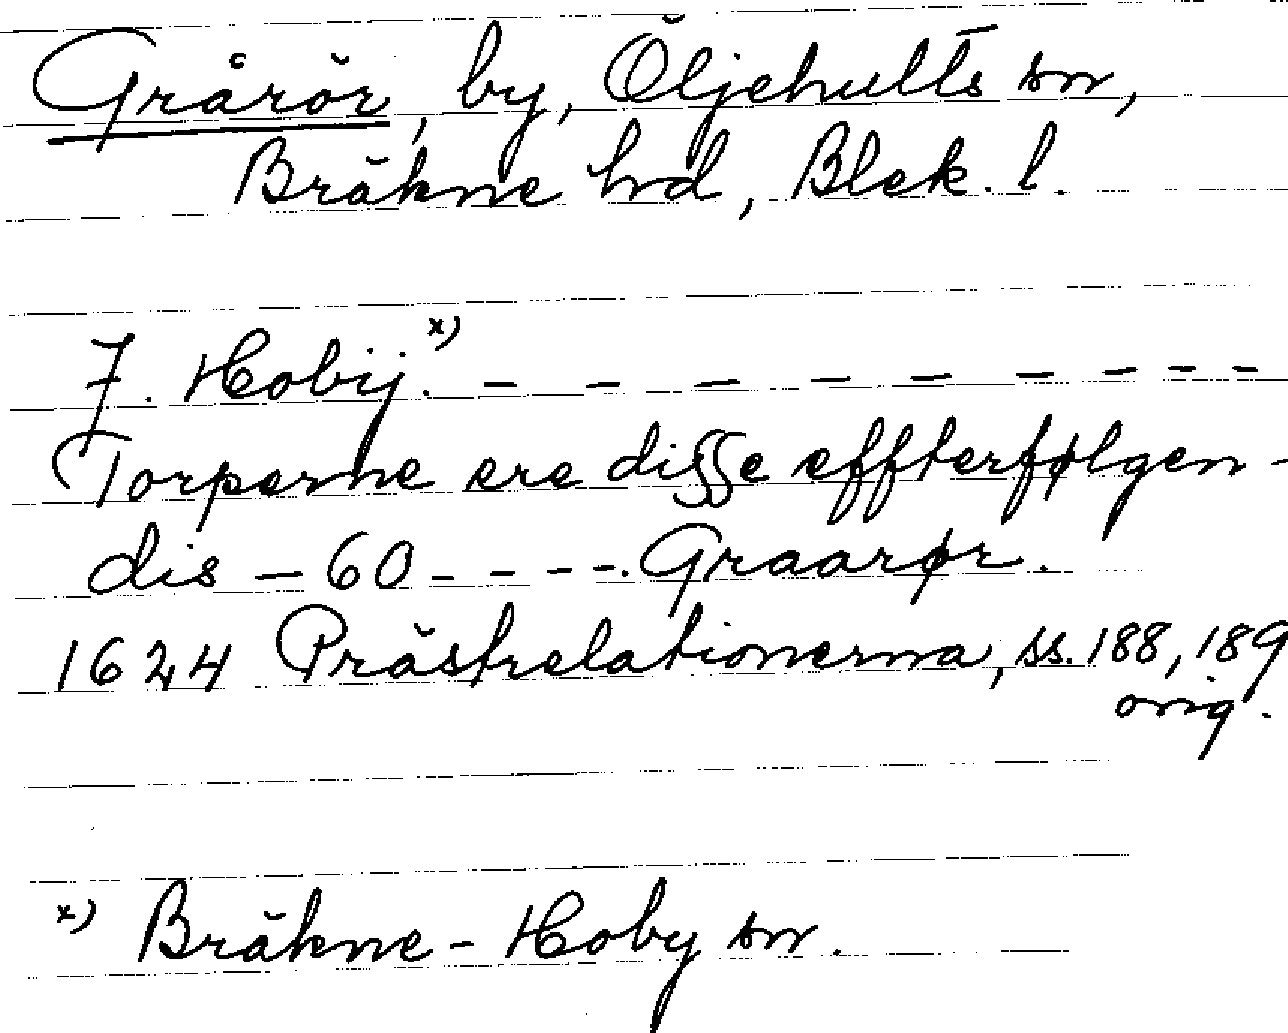 Grårör, by, Öljehults sn,
Bräkne hd, Blek. l.
J. Hobÿ. x) - - - - - - - - -
Torperne ere disse effterfølgen-
dis - 60 - - - -. Graarør.
1624 Prästrelationerna, ss. 188, 189
orig.
x) Bräkne-Hoby sn.